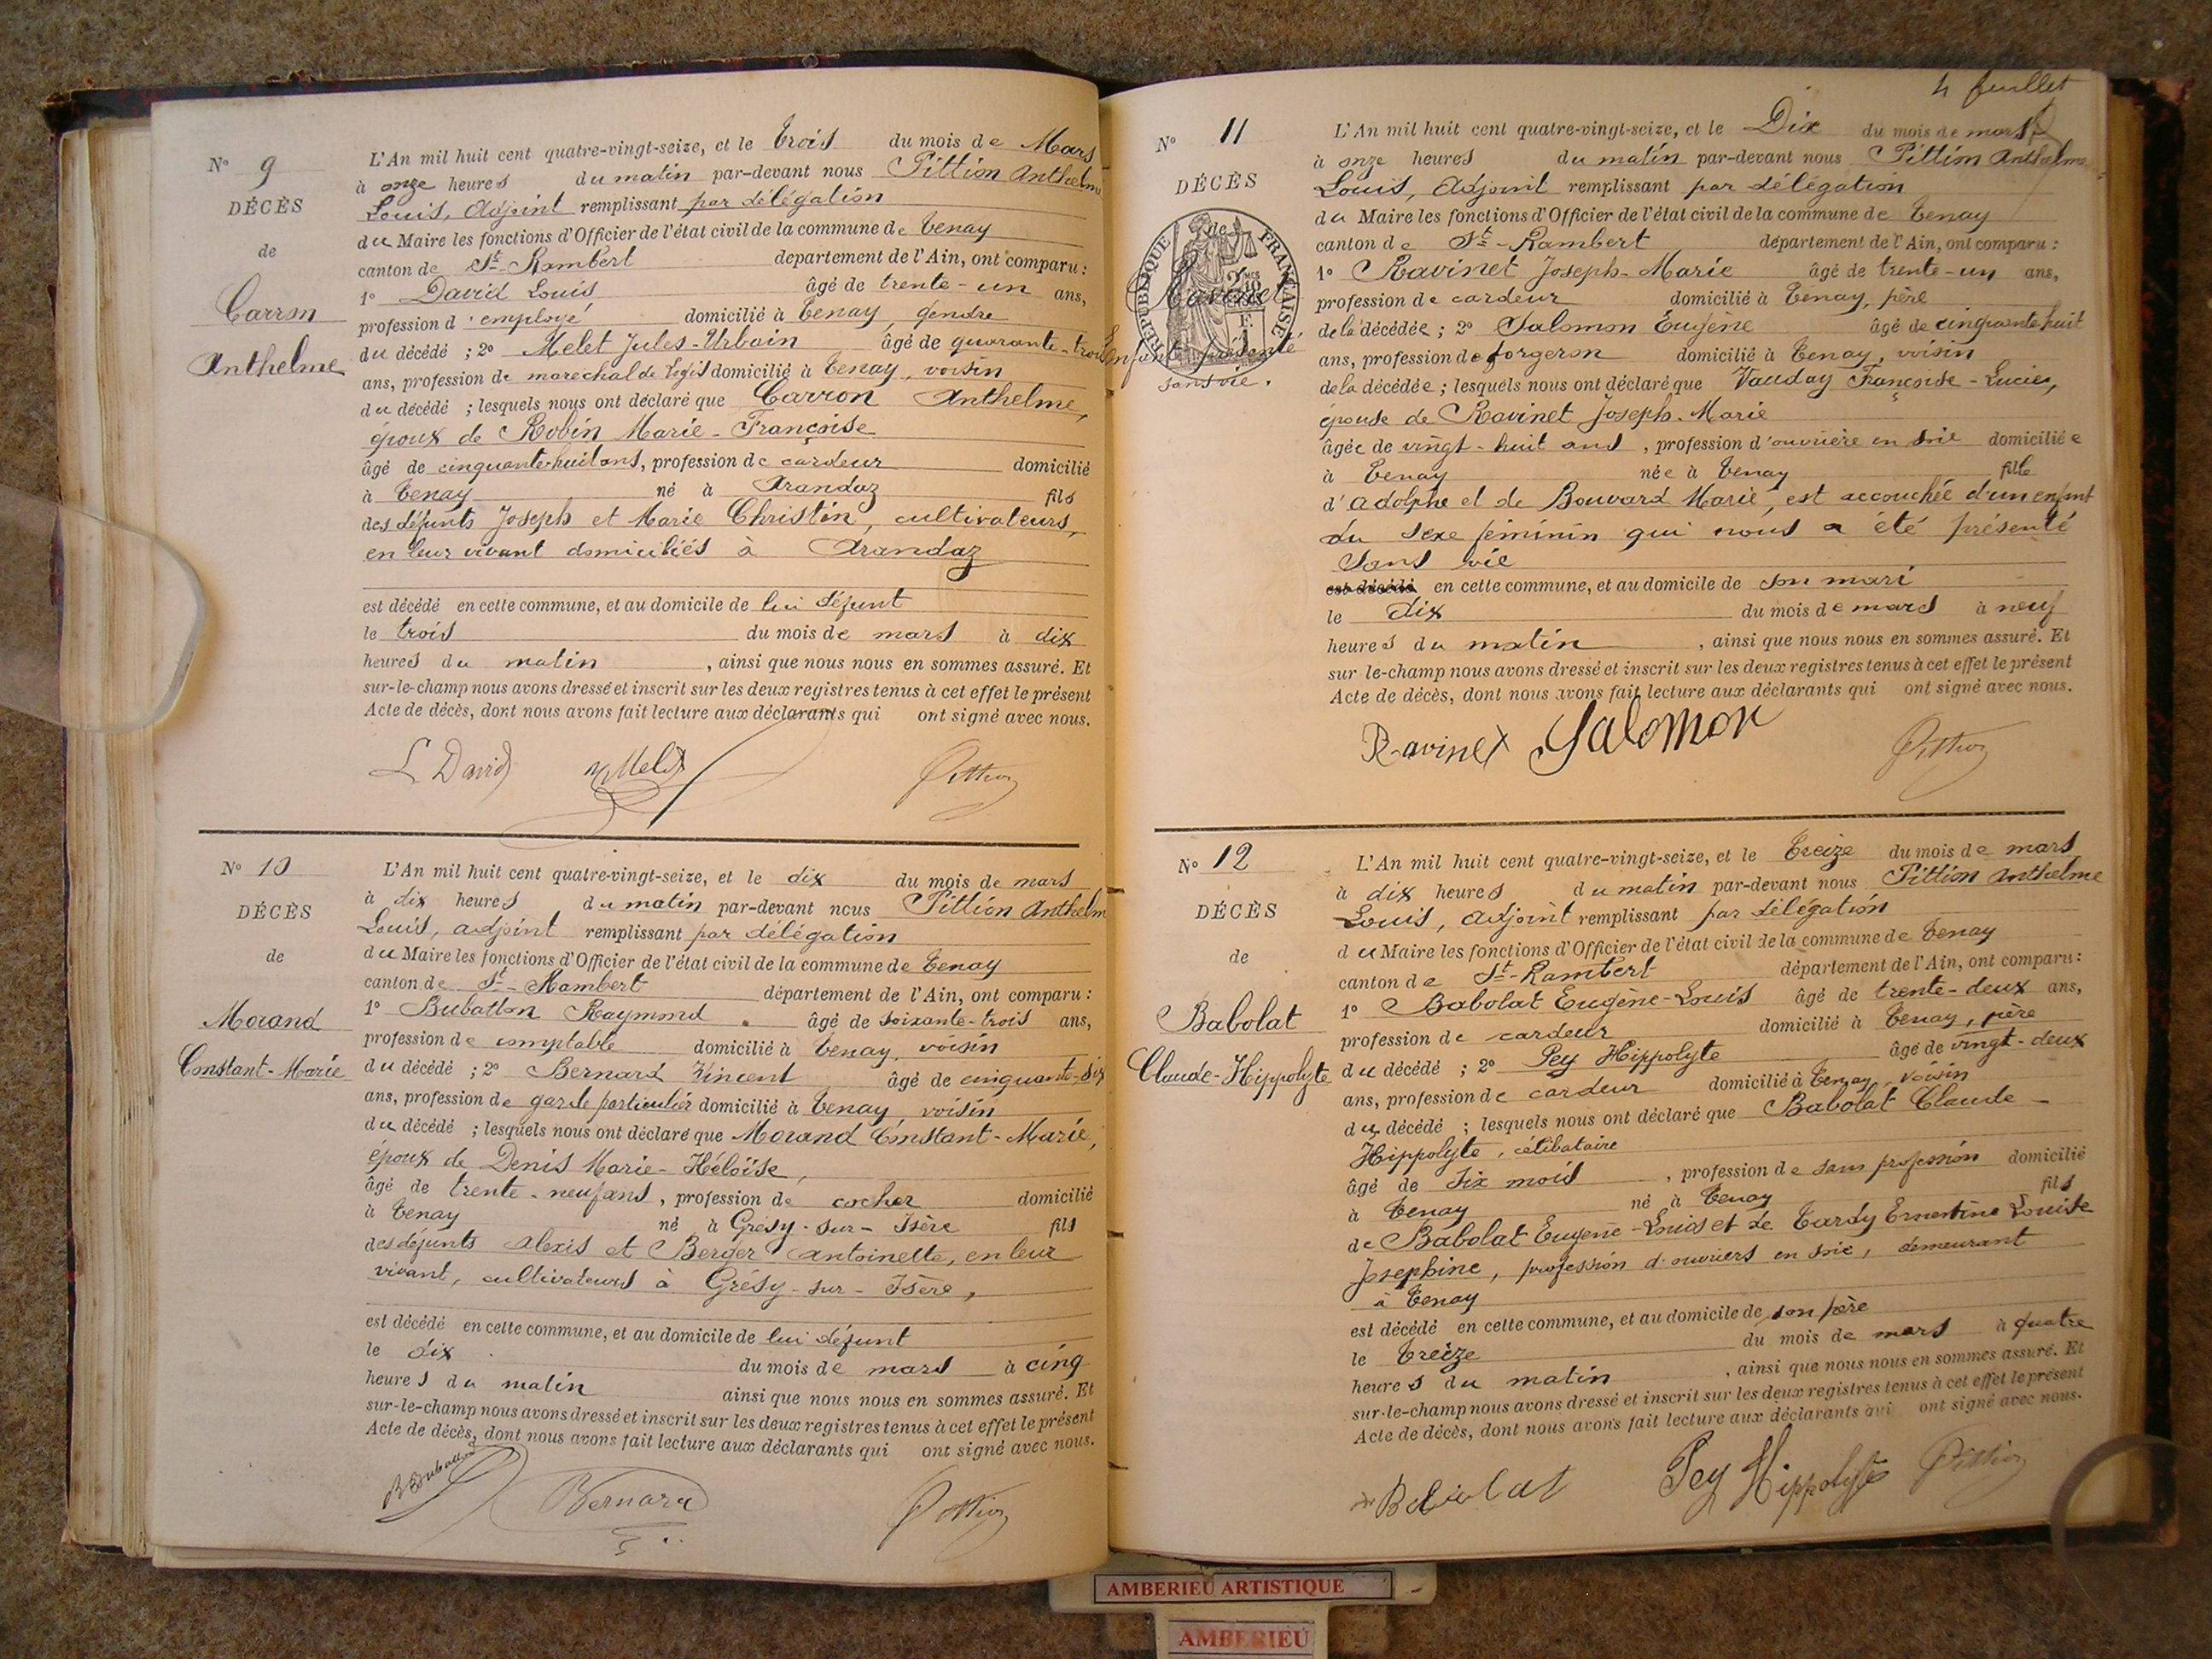 Nº 9
DÉCÈS
de
Carron
Anthelme
L'An mil huit cent quatre-vingt-seize, et le trois du mois de Mars
à onze heures du matin par-devant nous Pittion Anthelme
Louis, Adjoint remplissant par délégation
du Maire les fonctions d'Officier de l'état civil de la commune de Tenay
canton de St-Rambert département de l'Ain, ont comparu :
1º David Louis âgé de trente-un ans,
profession d'employé domicilié à Tenay, gendre
du décédé ; 2º Melet Jules-Urbain âgé de quarante-trois
ans, profession de maréchal de logis domicilié à Tenay, voisin
du décédé ; lesquels nous ont déclaré que Carron Anthelme,
époux de Robin Marie-Françoise
âgé de cinquante-huit ans, profession de cardeur domicilié
à Tenay né à Arandaz fils
des défunts Joseph et Marie Christin, cultivateurs,
en leur vivant domiciliés à Arandaz
est décédé en cette commune, et au domicile de lui défunt
le trois du mois de mars à dix
heures du matin, ainsi que nous nous en sommes assuré. Et
sur-le-champ nous avons dressé et inscrit sur les deux registres tenus à cet effet le présent
Acte de décès, dont nous avons fait lecture aux déclarants qui ont signé avec nous.
L David Melet Pittion
Nº 10
DÉCÈS
de
Morand
Constant-Marie
L'An mil huit cent quatre-vingt-seize, et le dix du mois de mars
à dix heures du matin par-devant nous Pittion Anthelm
Louis, adjoint remplissant par délégation
du Maire les fonctions d'Officier de l'état civil de la commune de Tenay
canton de St-Rambert département de l'Ain, ont comparu :
1º Bubatton Raymond âgé de soixante-trois ans,
profession de comptable domicilié à Tenay, voisin
du décédé ; 2º Bernard Vincent âgé de cinquante-six
ans, profession de garde particulier domicilié à Tenay, voisin
du décédé ; lesquels nous ont déclaré que Morand Constant-Marie,
époux de Denis Marie-Héloïse,
âgé de trente-neuf ans, profession de cocher domicilié
à Tenay né à Grésy-sur-Isère fils
des défunts Alexis et Berger Antoinette, en leur
vivant, cultivateurs à Grésy-sur-Isère,
est décédé en cette commune, et au domicile de lui défunt
le dix du mois de mars à cinq
heures du matin ainsi que nous nous en sommes assuré. Et
sur-le-champ nous avons dressé et inscrit sur les deux registres tenus à cet effet le présent
Acte de décès, dont nous avons fait lecture aux déclarants qui ont signé avec nous.
Bernard Pittion
4 feuillet
Nº 11
DÉCÈS
de
RÉPUBLIQUE FRANÇAISE
Ravinet
Enfant présenté
sans vie.
L'An mil huit cent quatre-vingt-seize, et le Dix du mois de mars
à onze heures du matin par-devant nous Pittion Anthelme
Louis, Adjoint remplissant par délégation
du Maire les fonctions d'Officier de l'état civil de la commune de Tenay
canton de St-Rambert département de l'Ain, ont comparu :
1º Ravinet Joseph-Marie âgé de trente-un ans,
profession de cardeur domicilié à Tenay, père
de la décédée ; 2º Salomon Eugène âgé de cinquante huit
ans, profession de forgeron domicilié à Tenay, voisin
de la décédée ; lesquels nous ont déclaré que Vauday Françoise-Lucie,
épouse de Ravinet Joseph-Marie
âgée de vingt-huit ans, profession d'ouvrière en soie domiciliée
à Tenay née à Tenay fille
d'Adolphe et de Bouvard Marie, est accouchée d'un enfant
du sexe féminin qui nous a été présenté
sans vie
est décédé en cette commune, et au domicile de son mari
le dix du mois de mars à neuf
heures du matin, ainsi que nous nous en sommes assuré. Et
sur-le-champ nous avons dressé et inscrit sur les deux registres tenus à cet effet le présent
Acte de décès, dont nous avons fait lecture aux déclarants qui ont signé avec nous.
Ravinet Salomon Pittion
Nº 12
DÉCÈS
de
Babolat
Claude-Hippolyte
L'An mil huit cent quatre-vingt-seize, et le treize du mois de mars
à dix heures du matin par-devant nous Pittion Anthelme
Louis, adjoint remplissant par délégation
du Maire les fonctions d'Officier de l'état civil de la commune de Tenay
canton de St-Rambert département de l'Ain, ont comparu :
1º Babolat Eugène-Louis âgé de trente-deux ans,
profession de cardeur domicilié à Tenay, père
du décédé ; 2º Pey Hippolyte âgé de vingt-deux
ans, profession de cardeur domicilié à Tenay, voisin
du décédé ; lesquels nous ont déclaré que Babolat Claude-
Hippolyte, célibataire
âgé de six mois, profession de sans profession domicilié
à Tenay né à Tenay fils
de Babolat Eugène-Louis et de Tardy Ernestine Louise
Josephine, profession d'ouvriers en soie, demeurant
à Tenay
est décédé en cette commune, et au domicile de son père
le treize du mois de mars à quatre
heures du matin, ainsi que nous nous en sommes assuré. Et
sur-le-champ nous avons dressé et inscrit sur les deux registres tenus à cet effet le présent
Acte de décès, dont nous avons fait lecture aux déclarants qui ont signé avec nous.
Babolat Pey Hippolyte Pittion
AMBERIEU ARTISTIQUE
AMBERIEU